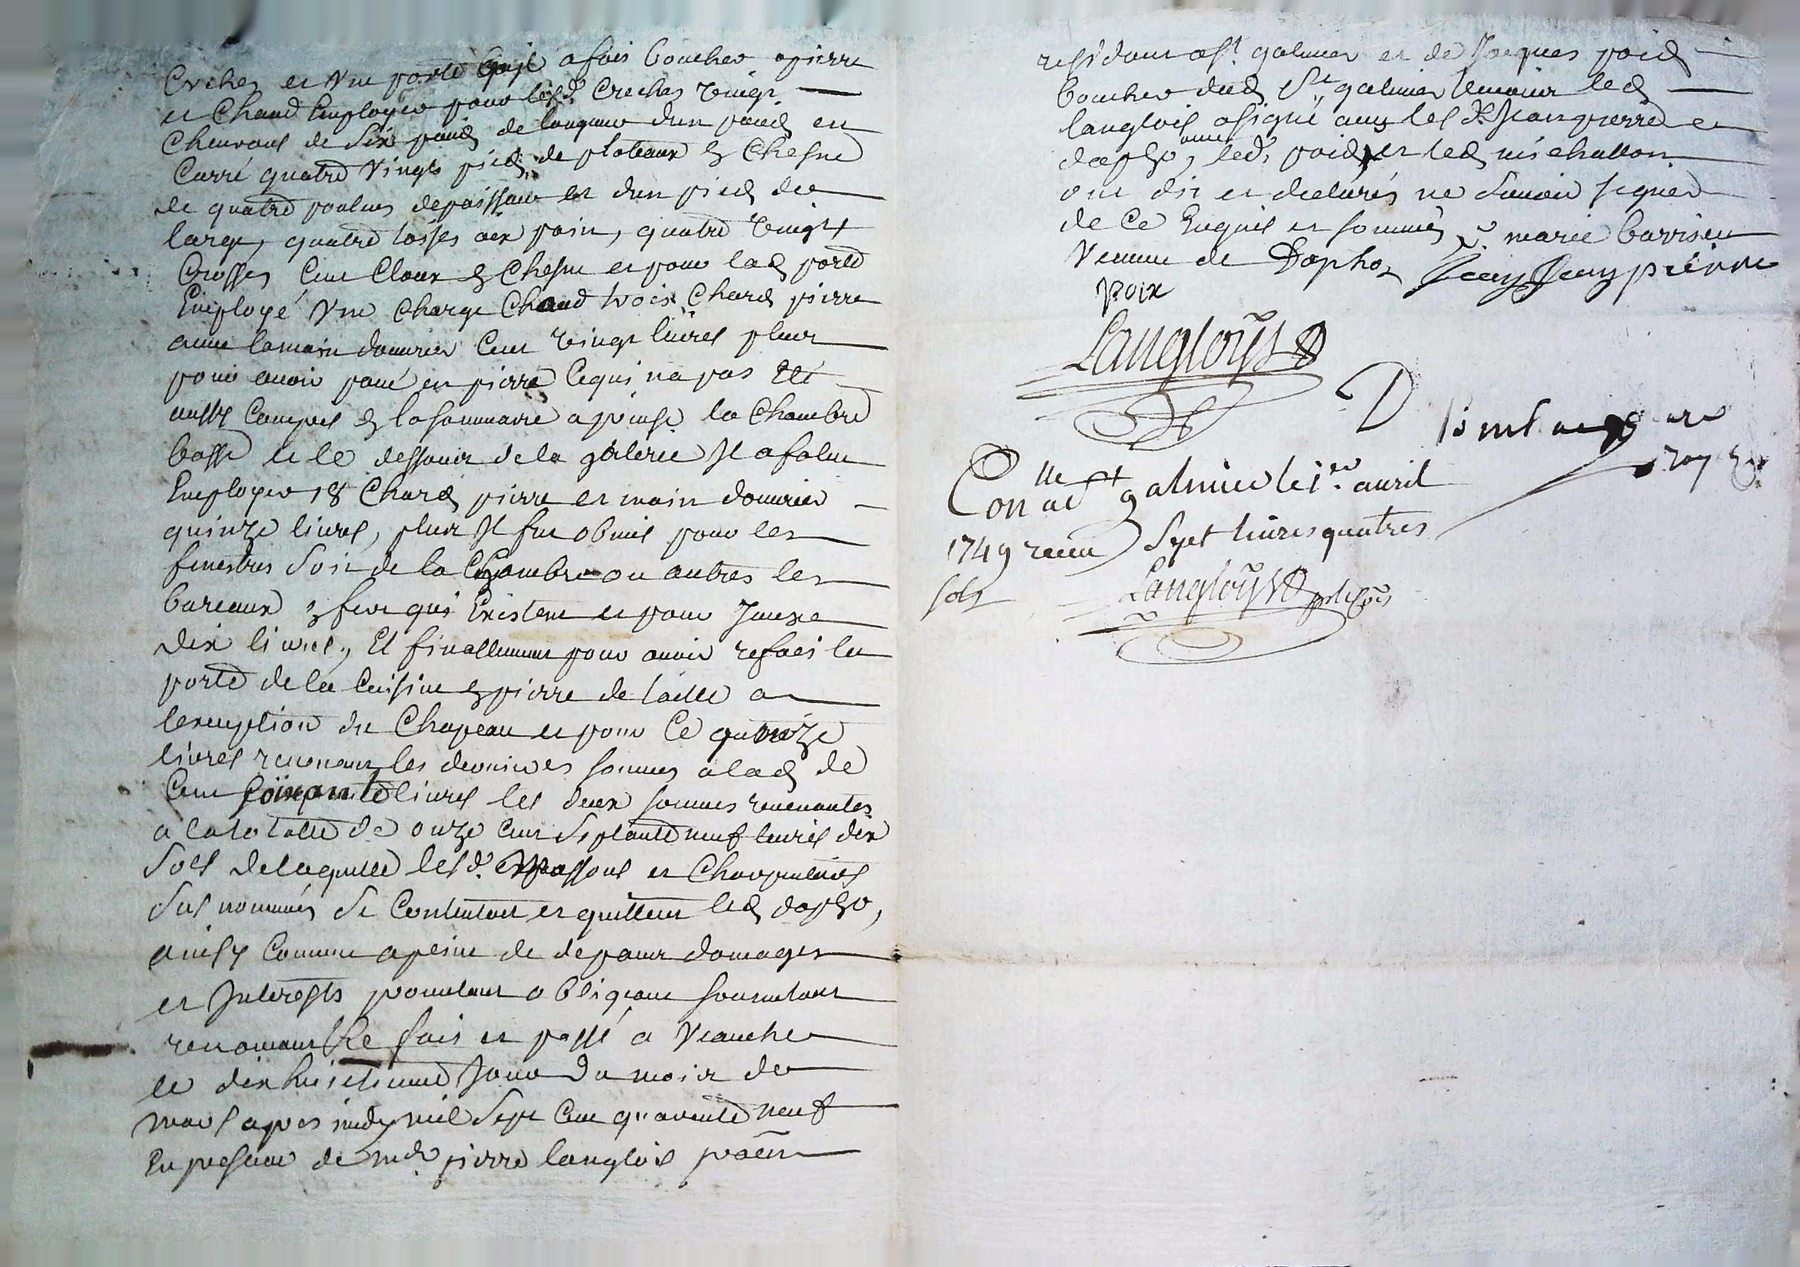 Creches et une porte quil a fait boucher a pierre
et Chaud Employer pour lesd. Creches vingt
Chevrons de Six pieds de longueur dun pied en
Carré quatre Vingts pieds de plateaux de Chesne
de quatre poulces depaisseur et dun pied de
large, quatre toises aix pair, quatre vingt
Crosses Cent Cloux de Chesne et pour lad porte
Employé Une Charge Chaud trois Chard pierre
avec la main douvrier Cent vingt livres plus
pour avoir pavé en pierre Cequi na pas été
aussy Compris de la sommaire a joinse la Chambre
basse et le dessous de la galerie Il a falu
Employer 18 Chard pierre et main douvrier
quinze livres, plus Il fut obmis pour les
fenestres Soit de la Chambre ou autres les
bareaux de fer qui Existent et pour Iceux
dix livres, Et finallement pour avoir refait la
porte de la Cuisine de pierre de taille a
lexeption du Chapeau et pour Ce quinze
livres revenant les dernieres sommes a lad de
Cent soixante livres les deux sommes revenantes
a la totalle de onze Cent Septante neuf livres dix
Sols delaquelle lesd. Massons et Charpentiers
Sus nommés Se Contentent et quittent led dapho,
ainsy Comme a peine de depans domages
et Interests promettant obligeant soumettant
renonceant &c fait et passé a Veauche
le dix huictieme Jour du mois de
mars apres midy mil Sept Cent quarante neuf
En presence de mr. pierre langlois pratn
residant a St galmier et de Jacques poid
boucher dud St galmier temoins led
langlois a signé avec les d. Jeanpierre et
dapho, led. poid et led michallon
ont dit et declarés ne Savoir signer
de Ce Enquis et sommés marie barrieu
Veuve de Dapho Jean Jeanpierre
poix
Langloys
Con.lle a St galmier le 1.er avril
1749 receu Sept livres quatres
sols
Langloys